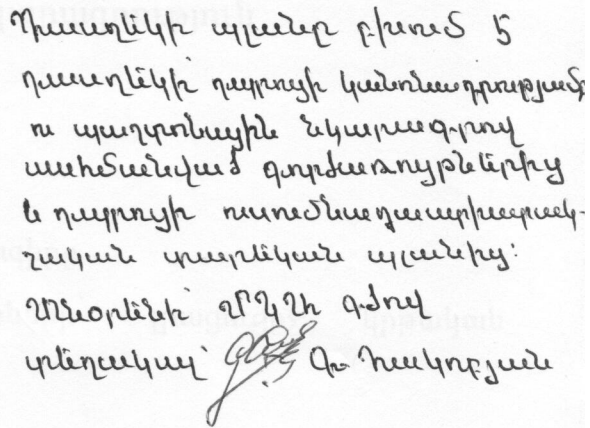 Դասղեկի պլանը բխում է
դասղեկի դպրոցի կանոնադրությամբ
ու պաշտոնային նկարագրով
սահմանված գործառույթներից
և դպրոցի ուսումնադաստիարակ-
չական տարեկան պլանից:
Տնօրենի ՄԿՉԻ գծով
տեղակալ՝ Գ. Հակոբյան